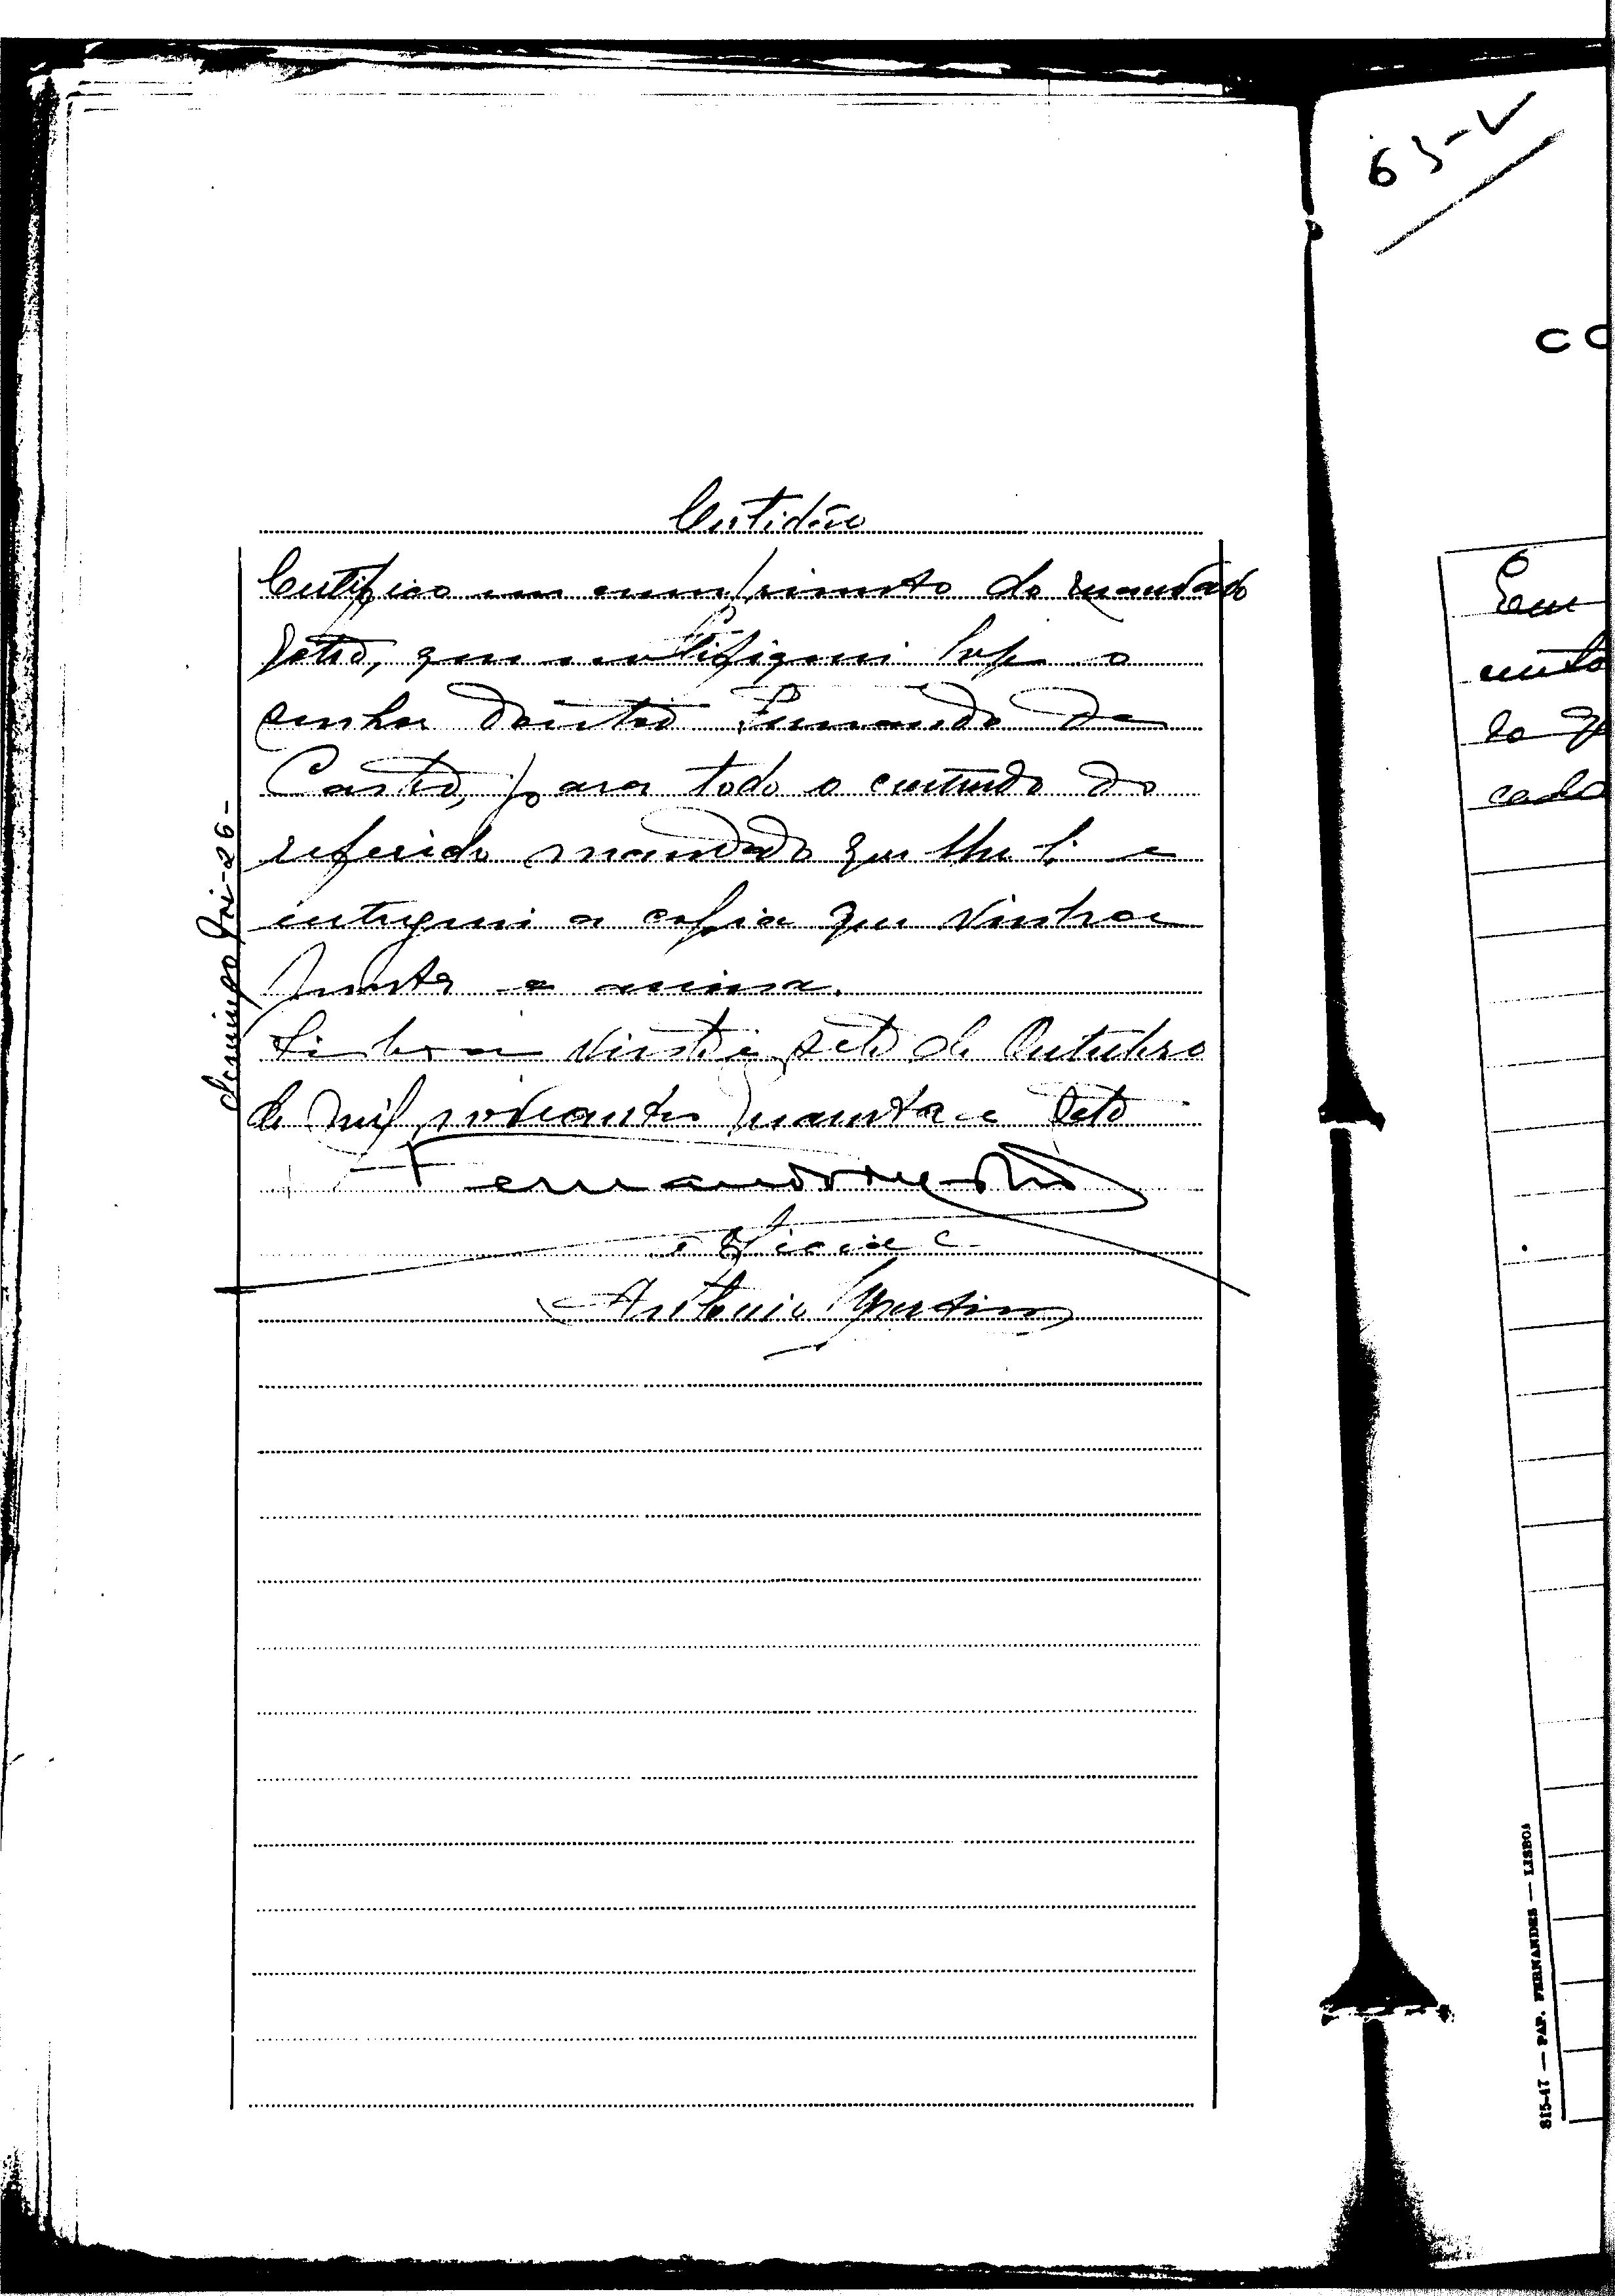 Certidão
Certifico em cumprimento do mandado
retro, que notifiquei hoje o
senhor doutor Fernando de
Castro, para todo o conteudo do
referido mandado que lhe li e
entreguei a copia que vinha
junta a
Lisboa vinte e sete de Outubro
de mil novecentos quarenta e sete
Fernando de Castro
O Oficial
Antonio Martins
domingo foi-26-
63-V
CO
Em
cado
815-47 — PAP. FERNANDES — LISBOA